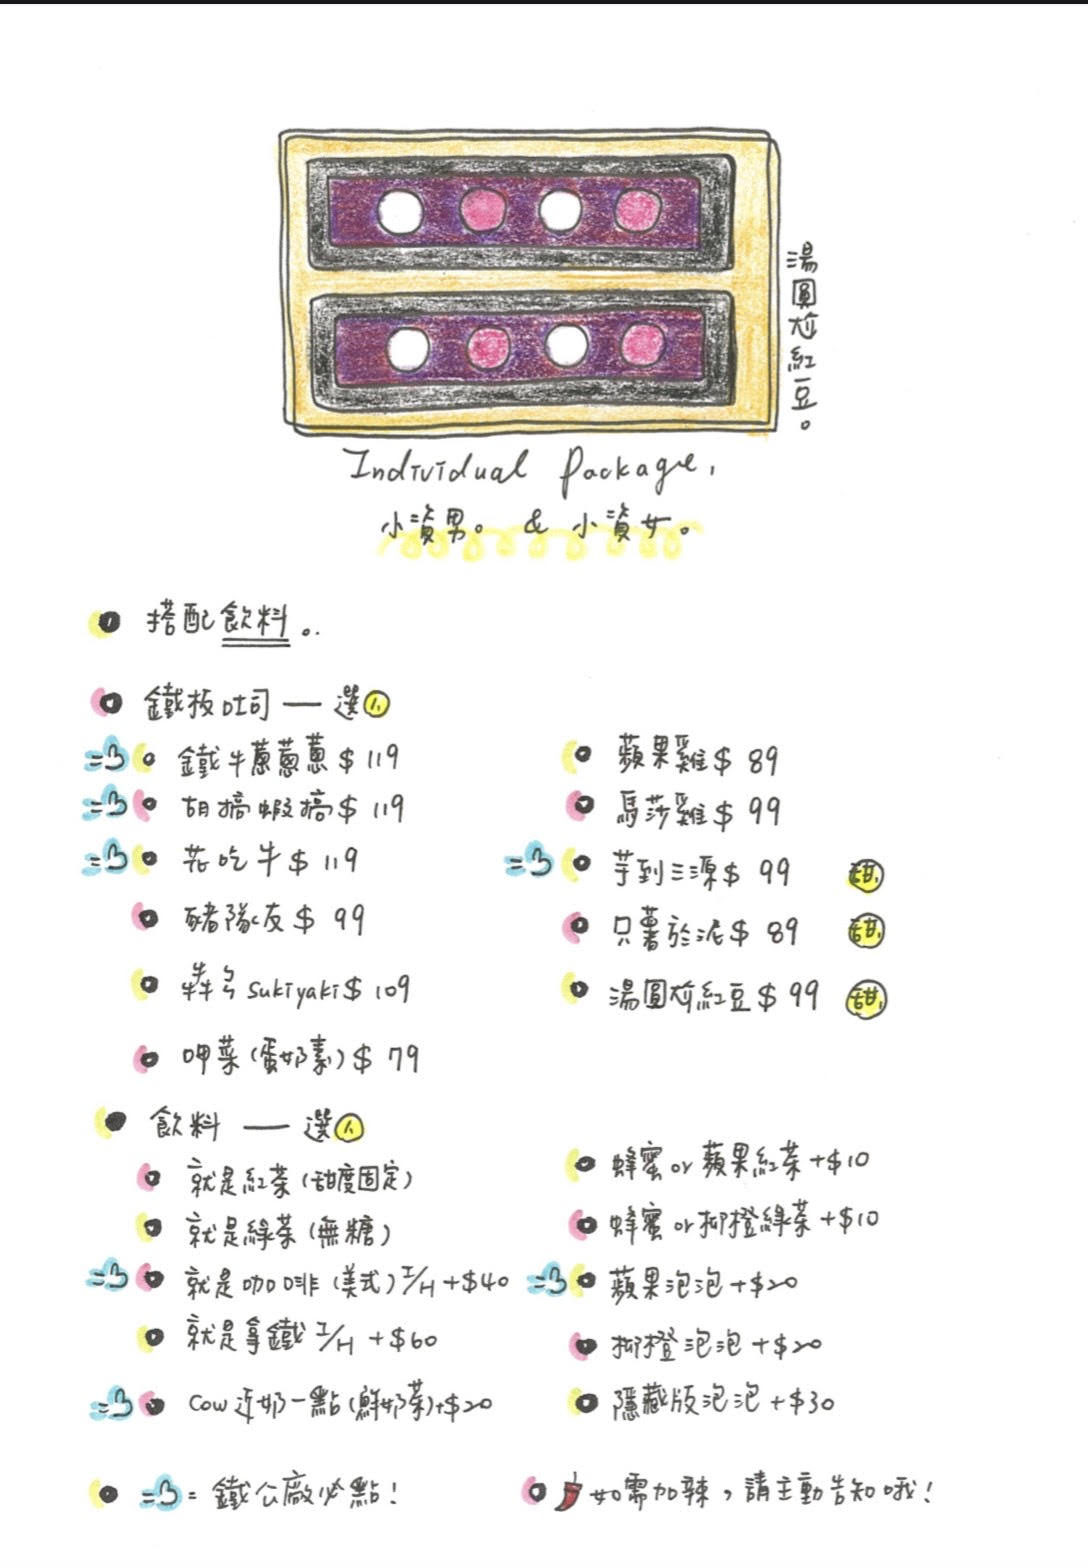 湯圓尬紅豆。
Individual Package,
小資男。 & 小資女。
搭配飲料。
鐵板吐司 — 選1.
鐵牛蔥蔥蔥 $ 119
胡搞蝦搞 $ 119
花吃牛 $ 119
豬隊友 $ 99
犇多 sukiyaki $ 109
呷菜 (蛋奶素) $ 79
蘋果雞 $ 89
馬莎雞 $ 99
芋到三源 $ 99 甜.
只薯於泥 $ 89 甜.
湯圓尬紅豆 $ 99 甜.
飲料 — 選1.
就是紅茶 (甜度固定)
就是綠茶 (無糖)
就是咖啡 (美式) I/H +$40
就是拿鐵 I/H +$60
Cow 近奶一點 (鮮奶茶) +$20
蜂蜜 or 蘋果紅茶 +$10
蜂蜜 or 柳橙綠茶 +$10
蘋果泡泡 +$20
柳橙泡泡 +$20
隱藏版泡泡 +$30
= 鐵公廠必點!
如需加辣,請主動告知哦!